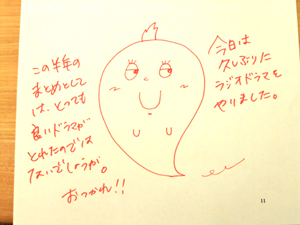 今日は
久しぶりに
ラジオドラマを
やりました。
この半年の
まとめとして
は、とっても
良いドラマが
とれたのでは
ないでしょうが。
おつかれ!!
11